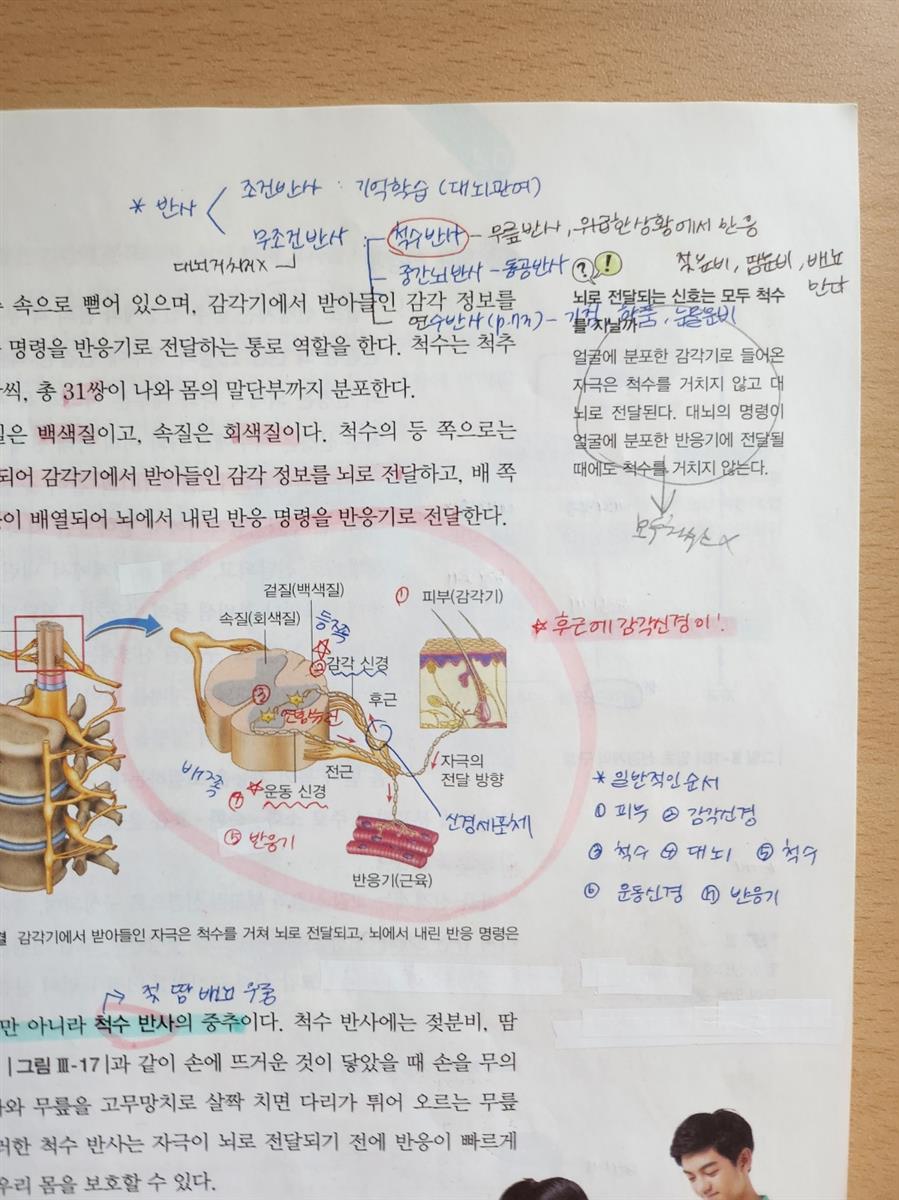 * 반사
조건반사 : 기억학습 (대뇌관여)
무조건반사 : 척수반사 - 무릎반사, 위급한상황에서 반응
젖분비, 땀분비, 배뇨
만다
대뇌거치지X
중간뇌반사 - 동공반사
연수반사(p.173) - 기침, 하품, 눈물분비
? !
뇌로 전달되는 신호는 모두 척수
를 지날까
얼굴에 분포한 감각기로 들어온
자극은 척수를 거치지 않고 대
뇌로 전달된다. 대뇌의 명령이
얼굴에 분포한 반응기에 전달될
때에도 척수를 거치지 않는다.
모두척수 X
속으로 뻗어 있으며, 감각기에서 받아들인 감각 정보를
명령을 반응기로 전달하는 통로 역할을 한다. 척수는 척주
씩, 총 31쌍이 나와 몸의 말단부까지 분포한다.
질은 백색질이고, 속질은 회색질이다. 척수의 등 쪽으로는
되어 감각기에서 받아들인 감각 정보를 뇌로 전달하고, 배 쪽
이 배열되어 뇌에서 내린 반응 명령을 반응기로 전달한다.
겉질(백색질)
속질(회색질)
등쪽
① 피부(감각기)
② 감각 신경
후근
③ 연합뉴런
전근
배쪽
④ 운동 신경
⑤ 반응기
자극의
전달 방향
신경세포체
반응기(근육)
☆ 후근에 감각신경이!
* 일반적인순서
① 피부 ② 감각신경
③ 척수 ④ 대뇌 ⑤ 척수
⑥ 운동신경 ⑦ 반응기
결 감각기에서 받아들인 자극은 척수를 거쳐 뇌로 전달되고, 뇌에서 내린 반응 명령은
젖 땀 배뇨 무릎
만 아니라 척수 반사의 중추이다. 척수 반사에는 젖분비, 땀
|그림 Ⅲ-17|과 같이 손에 뜨거운 것이 닿았을 때 손을 무의
나와 무릎을 고무망치로 살짝 치면 다리가 튀어 오르는 무릎
러한 척수 반사는 자극이 뇌로 전달되기 전에 반응이 빠르게
우리 몸을 보호할 수 있다.